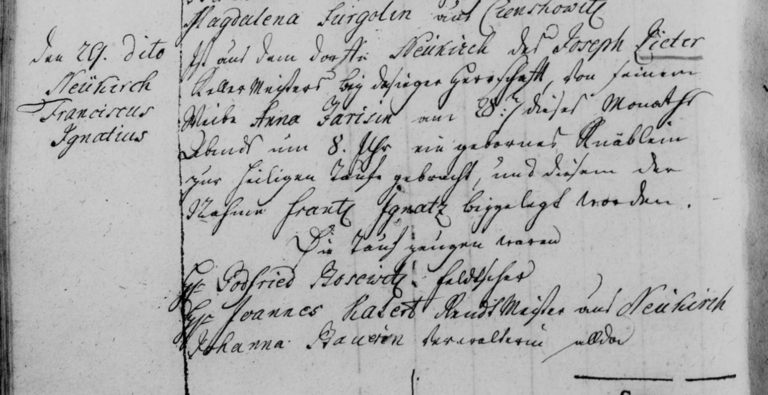 Magdalena Surgolin aus Czenskowitz
den 29. dito
Neükirch
Franciscus
Ignatius
Ist aus dem Dorffe Neükirch des Joseph Pieter
Kellermeisters bey dasiger Herrschafft, von seinem
Weibe Anna Farisin am 28: dieses Monaths
Abends um 8. Uhr ein gebornes Knäblein
zur heiligen Tauffe gebracht, und diesem der
Nahme Frantz Ignatz beygelegt worden.
Die Tauf zeugen waren
Hr Godfried Bosewitz feldscher
Hr Joannes Rendt Meister aus Neükirch
Johanna Bauerin Verwalterin allda